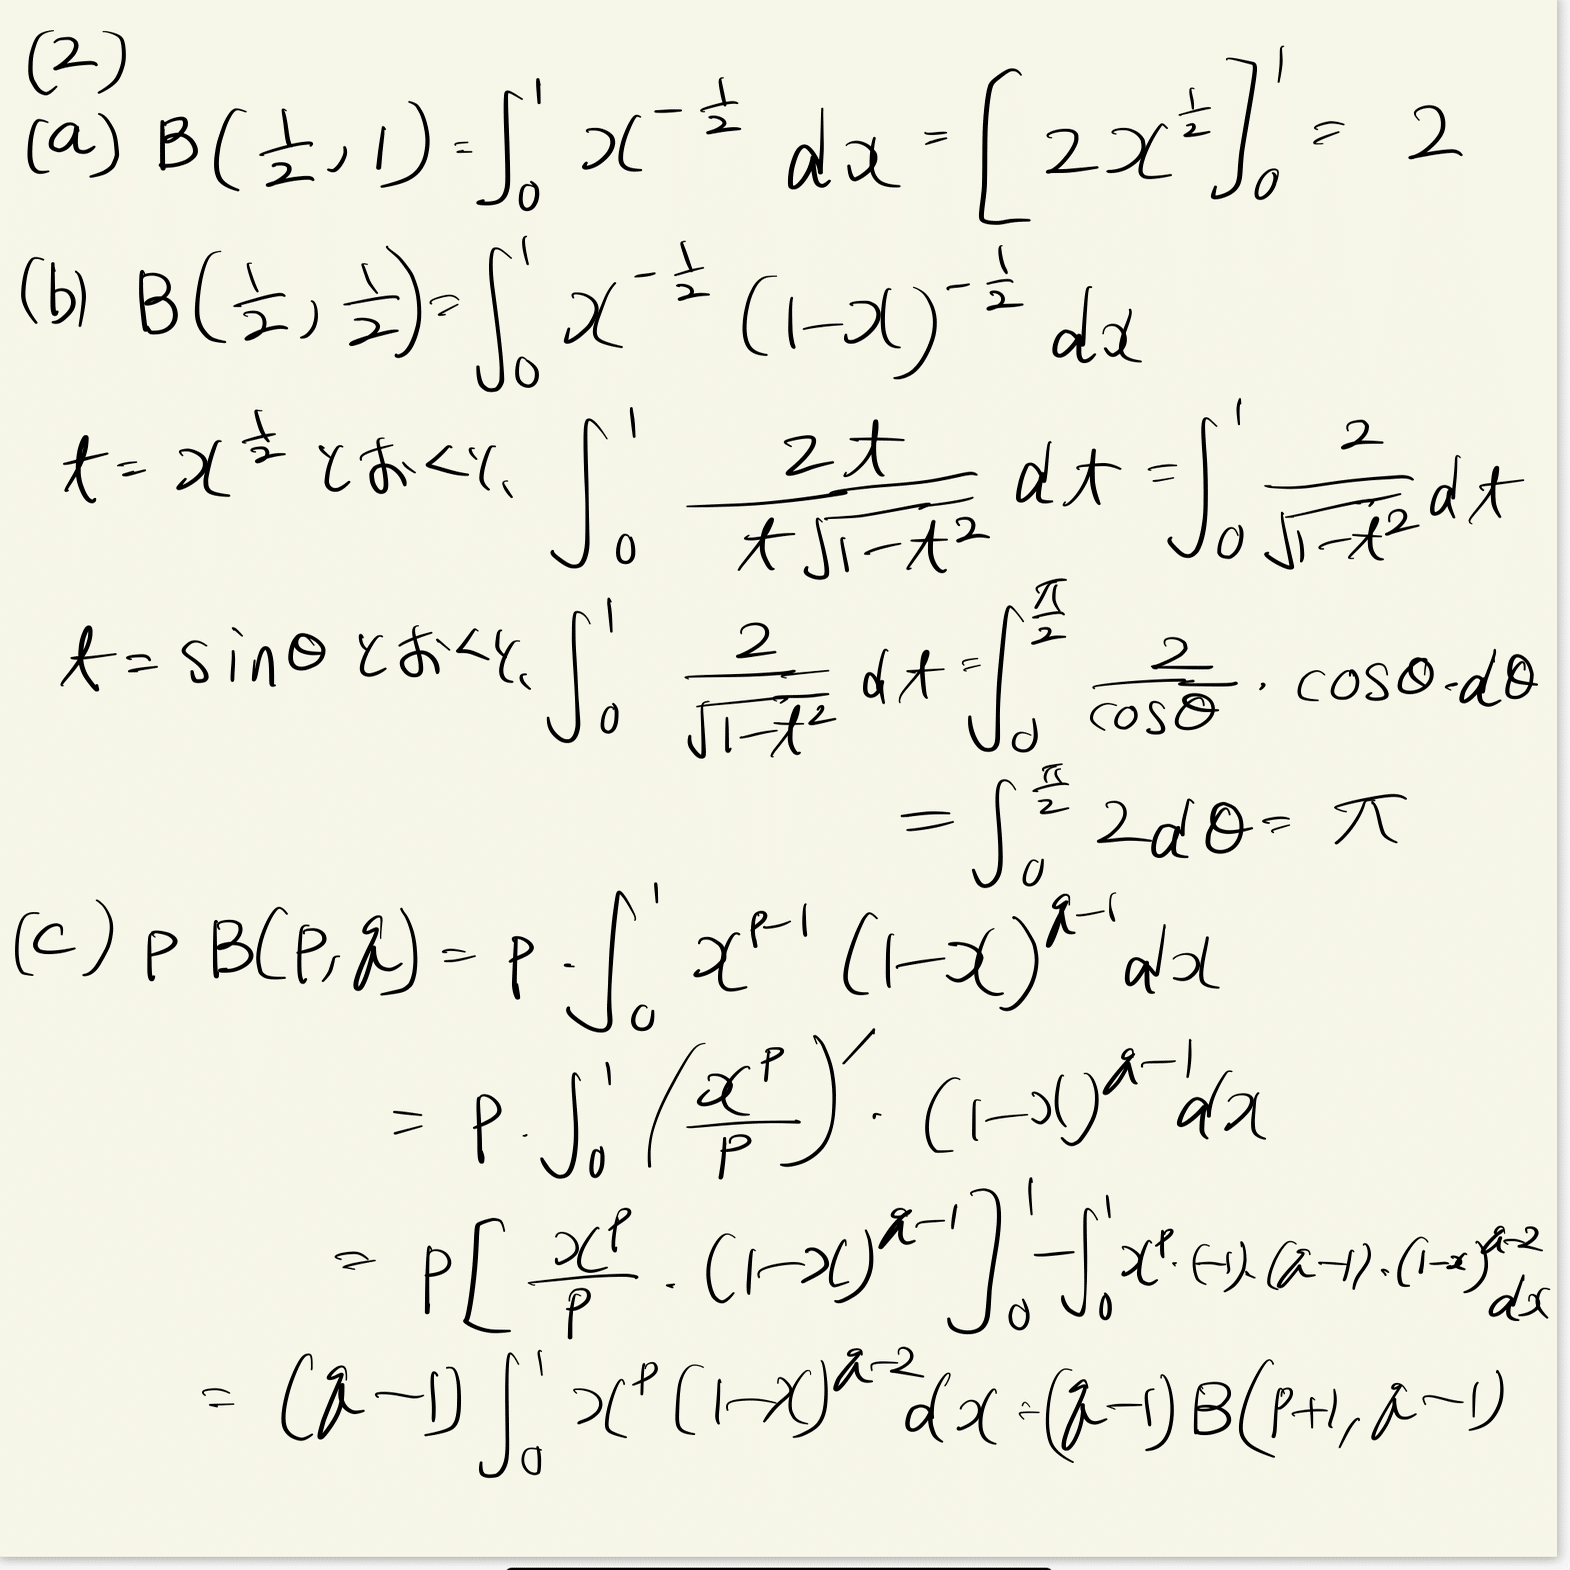 (2)
(a) B(1/2, 1) = ∫₀¹ x^{-1/2} dx = [2x^{1/2}]₀¹ = 2
(b) B(1/2, 1/2) = ∫₀¹ x^{-1/2} (1-x)^{-1/2} dx
t = x^{1/2} とおくと、 ∫₀¹ 2t/(t√(1-t²)) dt = ∫₀¹ 2/√(1-t²) dt
t = sinθ とおくと、 ∫₀¹ 2/√(1-t²) dt = ∫₀^{π/2} 2/cosθ · cosθ·dθ
= ∫₀^{π/2} 2dθ = π
(c) p B(p, q) = p · ∫₀¹ x^{p-1} (1-x)^{q-1} dx
= p · ∫₀¹ (x^p/p)′ · (1-x)^{q-1} dx
= p[x^p/p · (1-x)^{q-1}]₀¹ - ∫₀¹ x^p · (-1) · (q-1) · (1-x)^{q-2} dx
= (q-1) ∫₀¹ x^p (1-x)^{q-2} dx = (q-1) B(p+1, q-1)